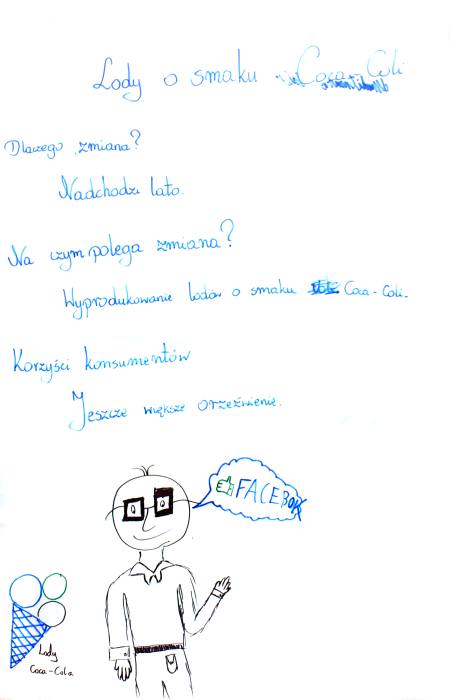 Lody o smaku Coca-Coli
Dlaczego zmiana?
Nadchodzi lato.
Na czym polega zmiana?
Wyprodukowanie lodów o smaku Coca-Coli.
Korzyści konsumentów
Jeszcze większe orzeźwienie.
FACEBOK
Lody
Coca-Cola